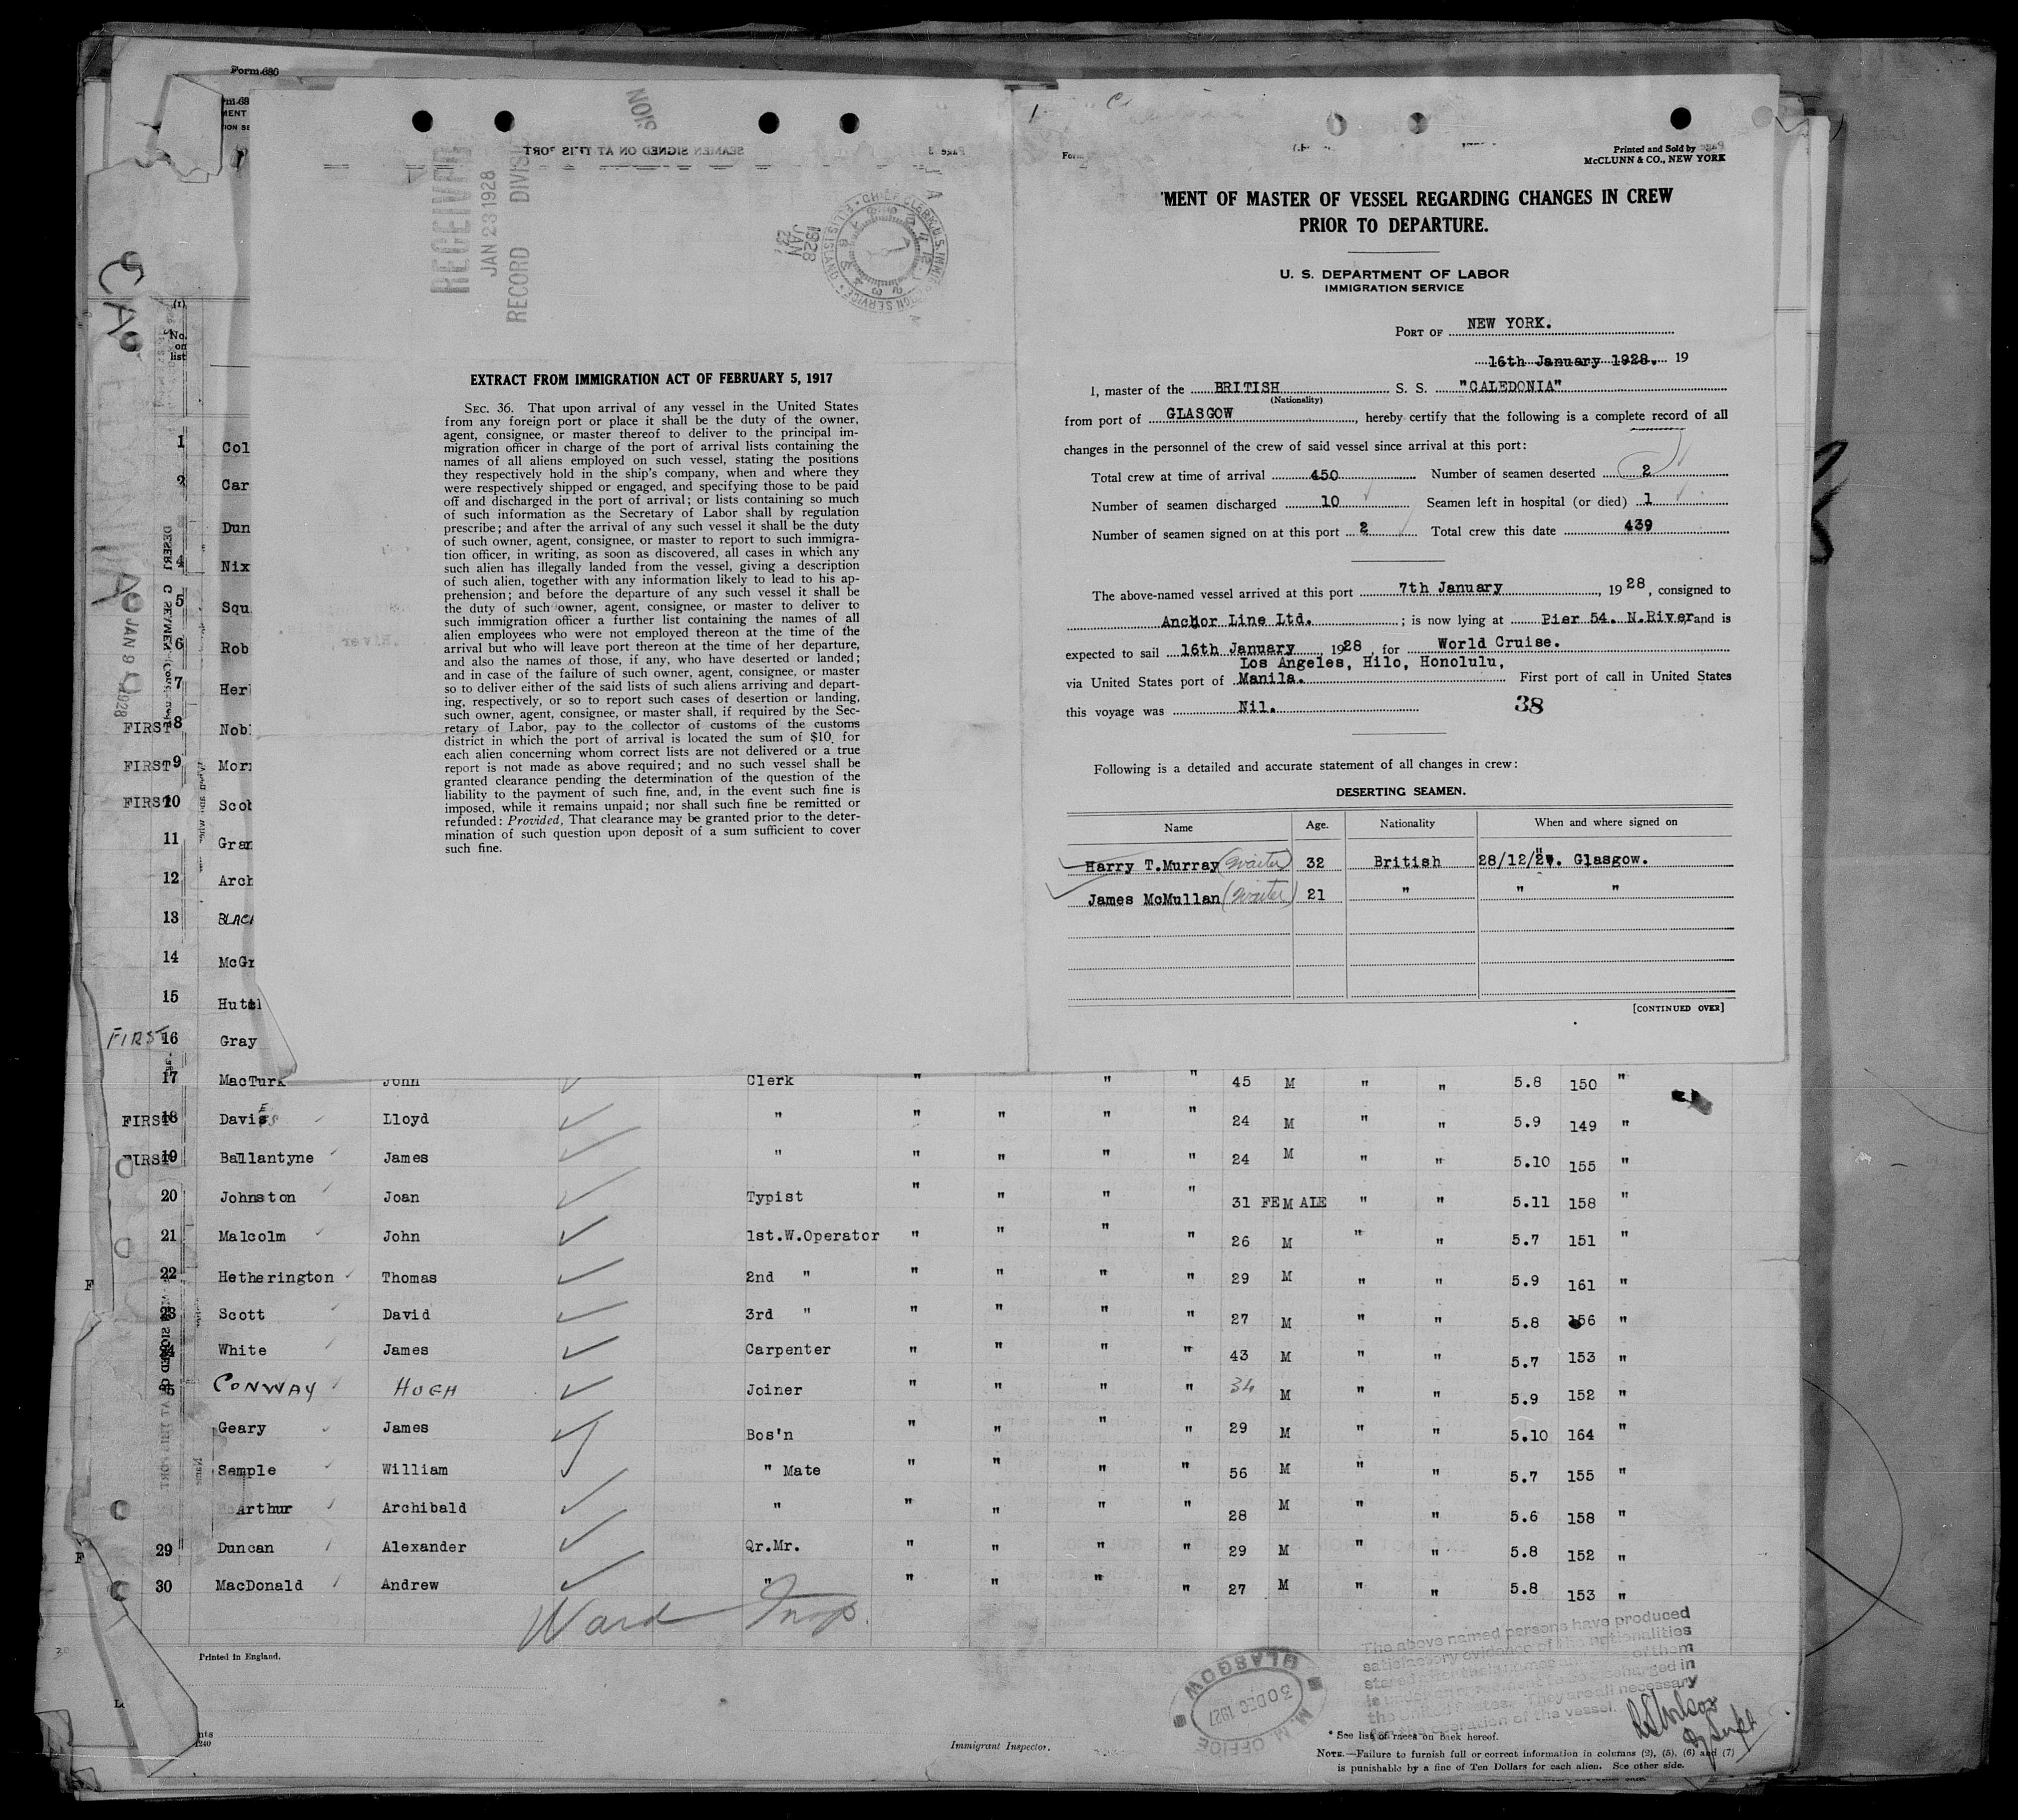 Form 680
RECEIVED
JAN 23 1928
RECORD DIVISION
SEAMEN SIGNED ON AT THIS PORT
Page 3
1928
JAN
23
CHIEF CLERK U.S. IMMIGRATION SERVICE ELLIS ISLAND
EXTRACT FROM IMMIGRATION ACT OF FEBRUARY 5, 1917
SEC. 36. That upon arrival of any vessel in the United States
from any foreign port or place it shall be the duty of the owner,
agent, consignee, or master thereof to deliver to the principal im-
migration officer in charge of the port of arrival lists containing the
names of all aliens employed on such vessel, stating the positions
they respectively hold in the ship's company, when and where they
were respectively shipped or engaged, and specifying those to be paid
off and discharged in the port of arrival; or lists containing so much
of such information as the Secretary of Labor shall by regulation
prescribe; and after the arrival of any such vessel it shall be the duty
of such owner, agent, consignee, or master to report to such immigra-
tion officer, in writing, as soon as discovered, all cases in which any
such alien has illegally landed from the vessel, giving a description
of such alien, together with any information likely to lead to his ap-
prehension; and before the departure of any such vessel it shall be
the duty of such owner, agent, consignee, or master to deliver to
such immigration officer a further list containing the names of all
alien employees who were not employed thereon at the time of the
arrival but who will leave port thereon at the time of her departure,
and also the names of those, if any, who have deserted or landed;
and in case of the failure of such owner, agent, consignee, or master
so to deliver either of the said lists of such aliens arriving and depart-
ing, respectively, or so to report such cases of desertion or landing,
such owner, agent, consignee, or master shall, if required by the Sec-
retary of Labor, pay to the collector of customs of the customs
district in which the port of arrival is located the sum of $10 for
each alien concerning whom correct lists are not delivered or a true
report is not made as above required; and no such vessel shall be
granted clearance pending the determination of the question of the
liability to the payment of such fine, and, in the event such fine is
imposed, while it remains unpaid; nor shall such fine be remitted or
refunded: Provided, That clearance may be granted prior to the deter-
mination of such question upon deposit of a sum sufficient to cover
such fine.
Form
Printed and Sold by
McCLUNN & CO., NEW YORK
'MENT OF MASTER OF VESSEL REGARDING CHANGES IN CREW
PRIOR TO DEPARTURE.
U. S. DEPARTMENT OF LABOR
IMMIGRATION SERVICE
PORT OF NEW YORK.
16th January 1928. 19
I, master of the BRITISH S. S. "CALEDONIA"
(Nationality)
from port of GLASGOW, hereby certify that the following is a complete record of all
changes in the personnel of the crew of said vessel since arrival at this port:
Total crew at time of arrival 450 Number of seamen deserted 2
Number of seamen discharged 10 Seamen left in hospital (or died) 1
Number of seamen signed on at this port 2 Total crew this date 439
The above-named vessel arrived at this port 7th January, 1928, consigned to
Anchor Line Ltd.; is now lying at Pier 54. N.River and is
expected to sail 16th January, 1928, for World Cruise.
Los Angeles, Hilo, Honolulu,
via United States port of Manila. First port of call in United States
this voyage was Nil. 38
Following is a detailed and accurate statement of all changes in crew:
DESERTING SEAMEN.
Name Age. Nationality When and where signed on
Harry T.Murray (waiter) 32 British 28/12/27. Glasgow.
James McMullan (waiter) 21 " " "
[CONTINUED OVER]
(1)
No.
on
list
1 Col
2 Car
Dun
4 Nix
5 Squ
6 Rob
7 Her
FIRST 8 Nob
FIRST 9 Mor
FIRST 10 Scot
11 Gran
12 Arch
13 BLACK
14 McGr
15 Hutch
FIRST 16 Gray
17 MacTurk John Clerk " " " 45 M " " 5.8 150 "
FIRST 18 Davies Lloyd " " " " " 24 M " " 5.9 149 "
FIRST 19 Ballantyne James " " " " " 24 M " " 5.10 155 "
20 Johnston Joan Typist " " " " 31 FEMALE " " 5.11 158 "
21 Malcolm John 1st.W.Operator " " " " 26 M " " 5.7 151 "
22 Hetherington Thomas 2nd " " " " " 29 M " " 5.9 161 "
23 Scott David 3rd " " " " " 27 M " " 5.8 156 "
24 White James Carpenter " " " " 43 M " " 5.7 153 "
25 CONWAY HUGH Joiner " " " " 34 M " " 5.9 152 "
Geary James Bos'n " " " " 29 M " " 5.10 164 "
Semple William " Mate " " " " 56 M " " 5.7 155 "
Arthur Archibald " " " " " 28 M " " 5.6 158 "
29 Duncan Alexander Qr.Mr. " " " " 29 M " " 5.8 152 "
30 MacDonald Andrew " " " " " 27 M " " 5.8 153 "
Ward Insp.
Printed in England.
M.M. OFFICE GLASGOW
30 DEC 1927
The above named persons have produced
satisfactory evidence of the nationalities
the United States. They are all necessary
for the operation of the vessel.
Immigrant Inspector.
* See list of races on back hereof.
NOTE.—Failure to furnish full or correct information in columns (2), (5), (6) and (7)
is punishable by a fine of Ten Dollars for each alien. See other side.